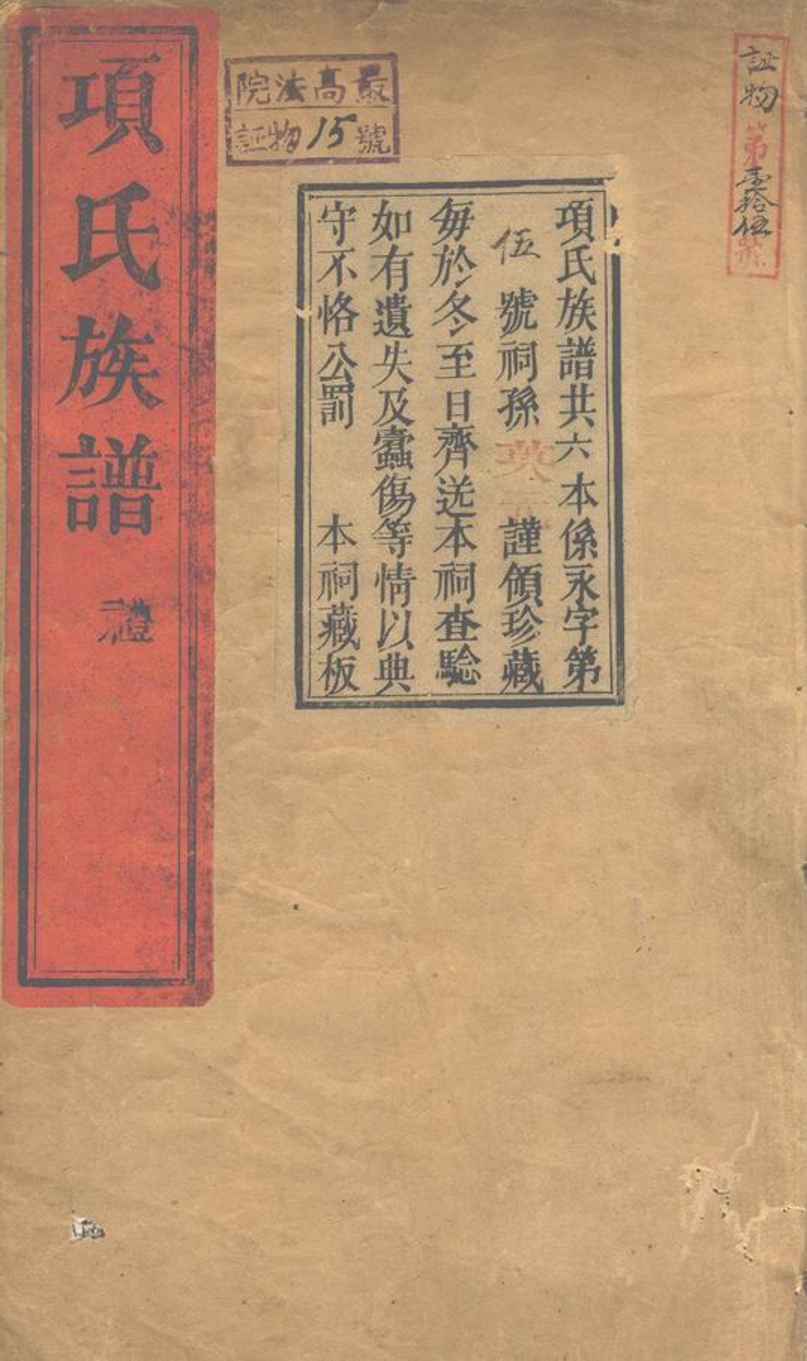 証物
第壹拾伍號
最高法院
証物15號
項氏族譜共六本係永字第
伍號祠孫英謹領珍藏
每於冬至日齊送本祠查驗
如有遺失及蠹傷等情以典
守不恪公罰 本祠藏板
項氏族譜 禮